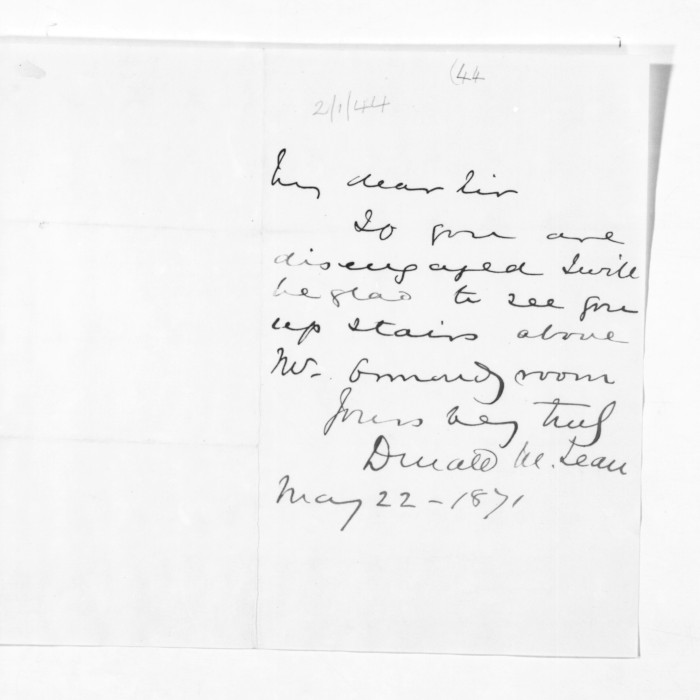 (44
2/1/44
My dear Sir
If you are
disengaged I will
be glad to see you
up stairs above
Mr. Ormond's room
Yours very truly
Donald McLean
May 22 - 1871